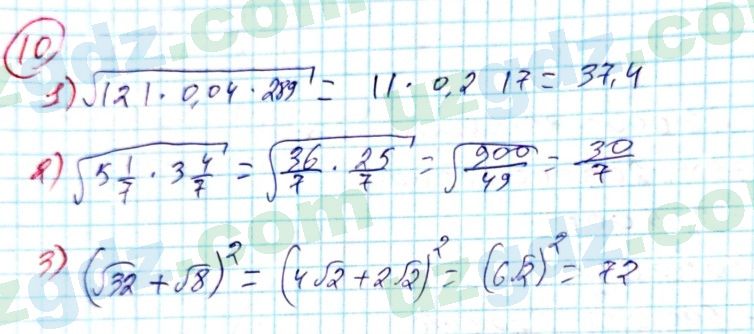 10
1) √121 · 0,04 · 289 = 11 · 0,2 17 = 37,4
2) √5 1/7 · 3 4/7 = √36/7 · 25/7 = √900/49 = 30/7
3) (√32 + √8)² = (4√2 + 2√2)² = (6√2)² = 72
uzgdz.com